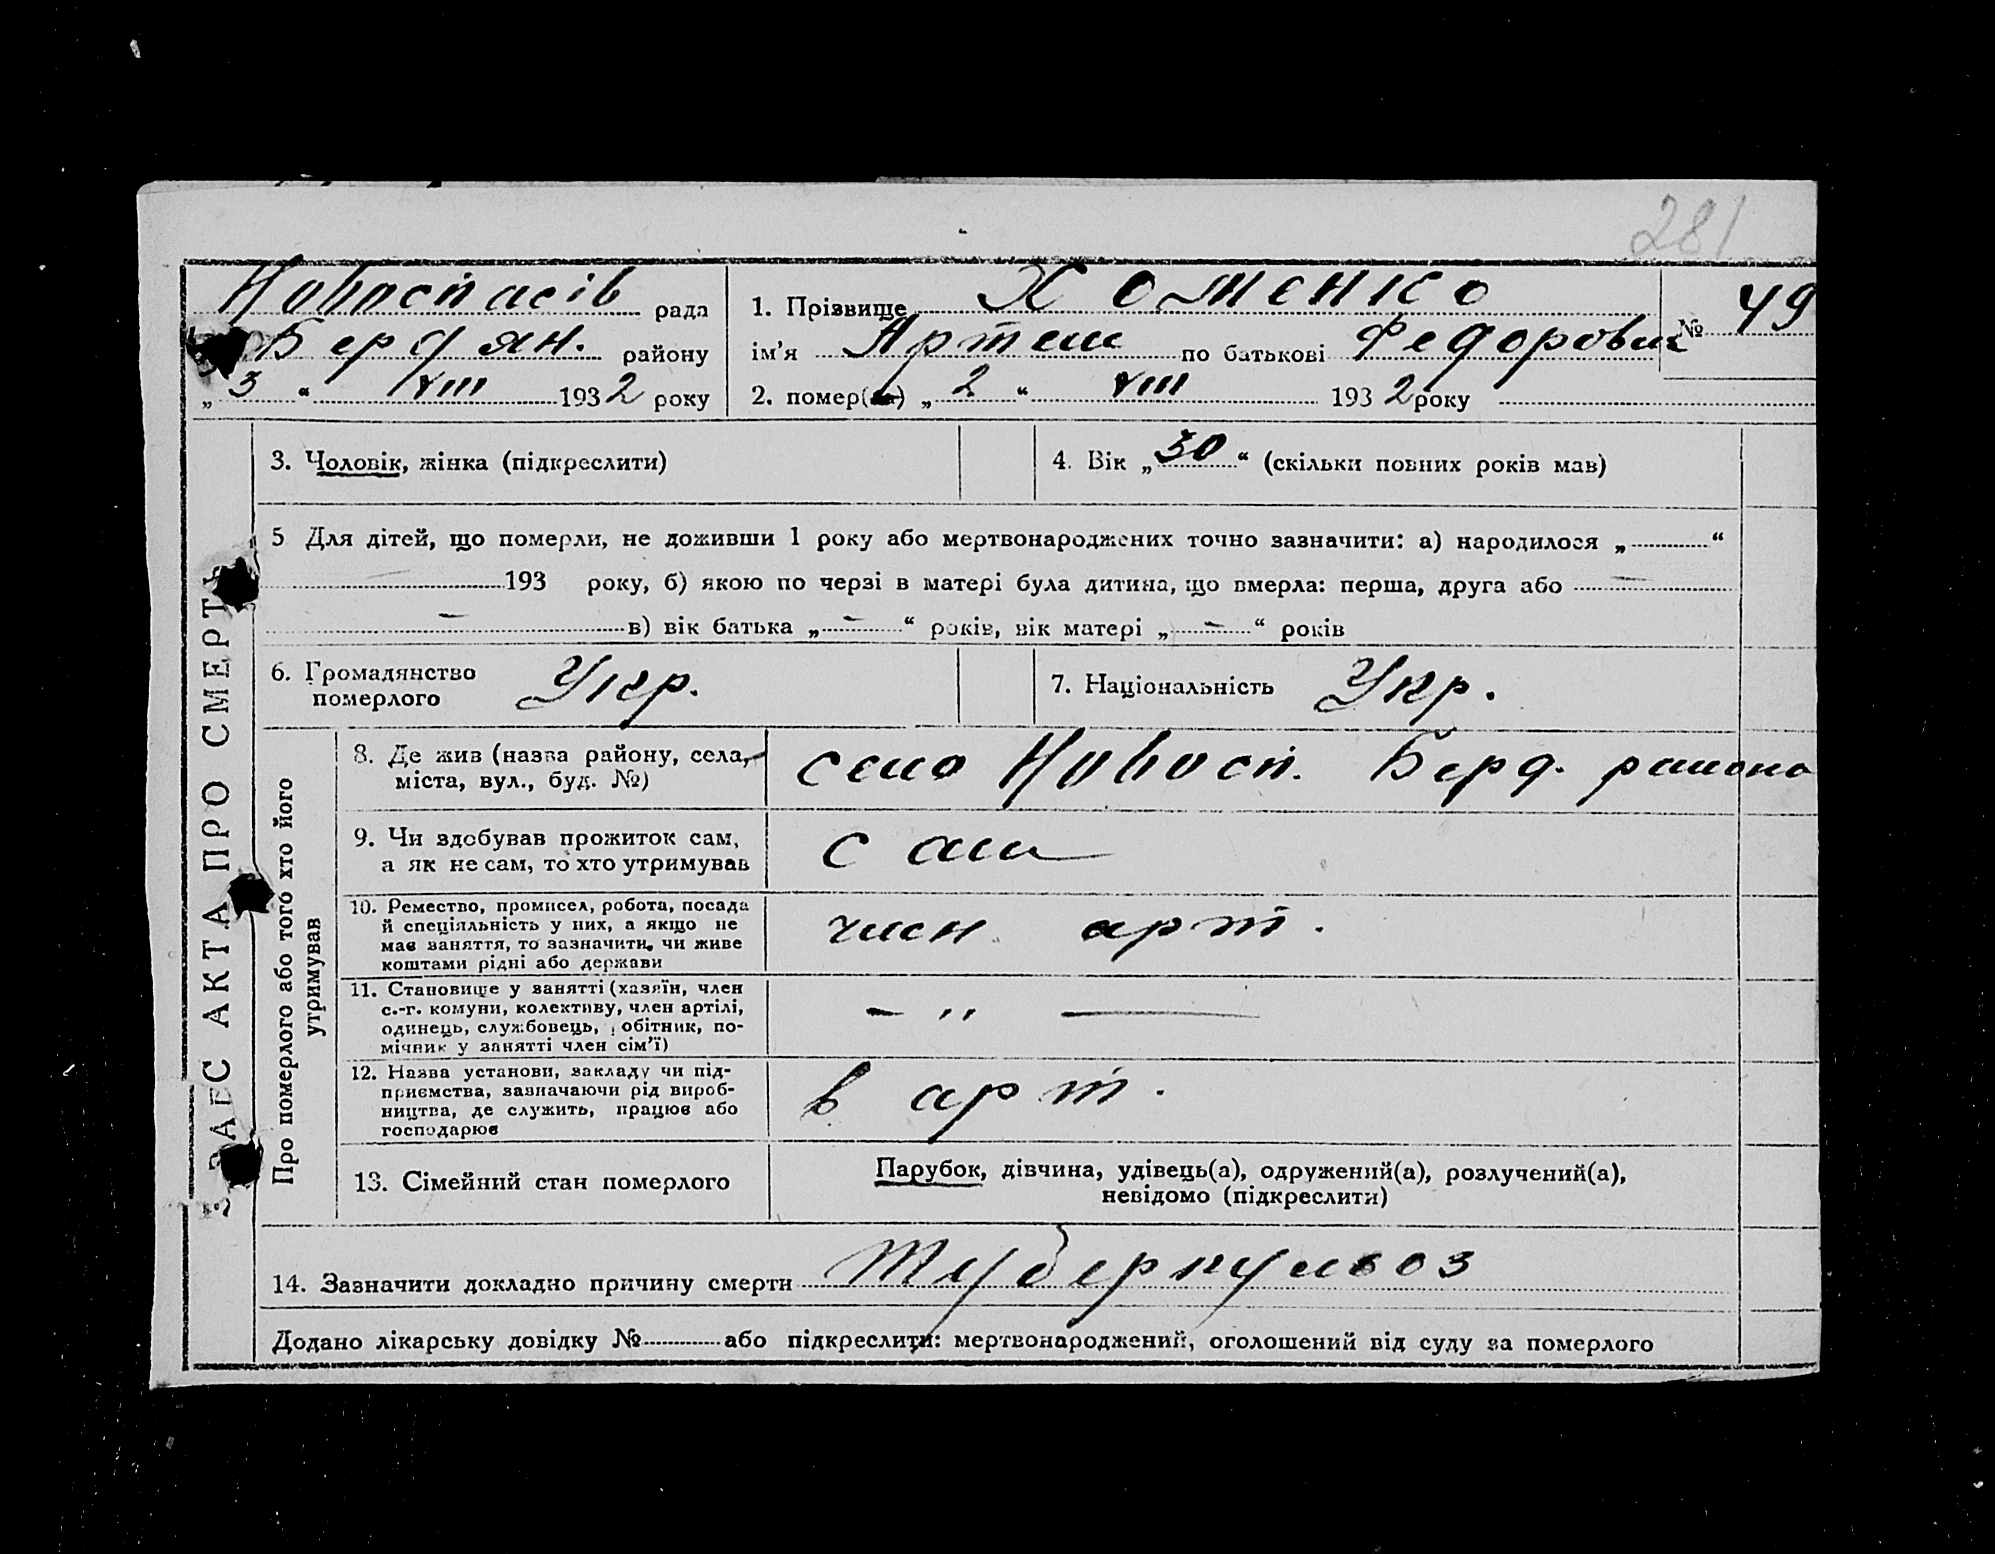 281
Новоспасів рада
Бердян. району
„ 3 “ VIII 1932 року
1. Прізвище Хоменко
№ 49
ім’я Артем по батькові Федорович
2. помер( ) „ 2 “ VIII 1932 року
З ЗАГС АКТА ПРО СМЕРТЬ
3. Чоловік, жінка (підкреслити)
4. Вік „ 30 “ (скільки повних років мав)
5 Для дітей, що померли, не доживши 1 року або мертвонароджених точно зазначити: а) народилося „ “
— 193 року, б) якою по черзі в матері була дитина, що вмерла: перша, друга або —
— в) вік батька „ — “ років, вік матері „ — “ років
6. Громадянство
померлого Укр.
7. Національність Укр.
Про померлого або того хто його
утримував
8. Де жив (назва району, села,
міста, вул., буд. №)
село Новосп. Берд. района
9. Чи здобував прожиток сам,
а як не сам, то хто утримував
сам
10. Ремество, промисел, робота, посада
й спеціяльність у них, а якщо не
має заняття, то зазначити, чи живе
коштами рідні або держави
член арт.
11. Становище у занятті (хазяїн, член
с.-г. комуни, колективу, член артілі,
одинець, службовець, обітник, по-
мічник у занятті член сім’ї)
— „ —
12. Назва установи, закладу чи під-
приємства, зазначаючи рід вироб-
ництва, де служить, працює або
господарює
в арт.
13. Сімейний стан померлого
Парубок, дівчина, удівець(а), одружений(а), розлучений(а),
невідомо (підкреслити)
14. Зазначити докладно причину смерти Туберкульоз
Додано лікарську довідку № або підкреслити: мертвонароджений, оголошений від суду за померлого